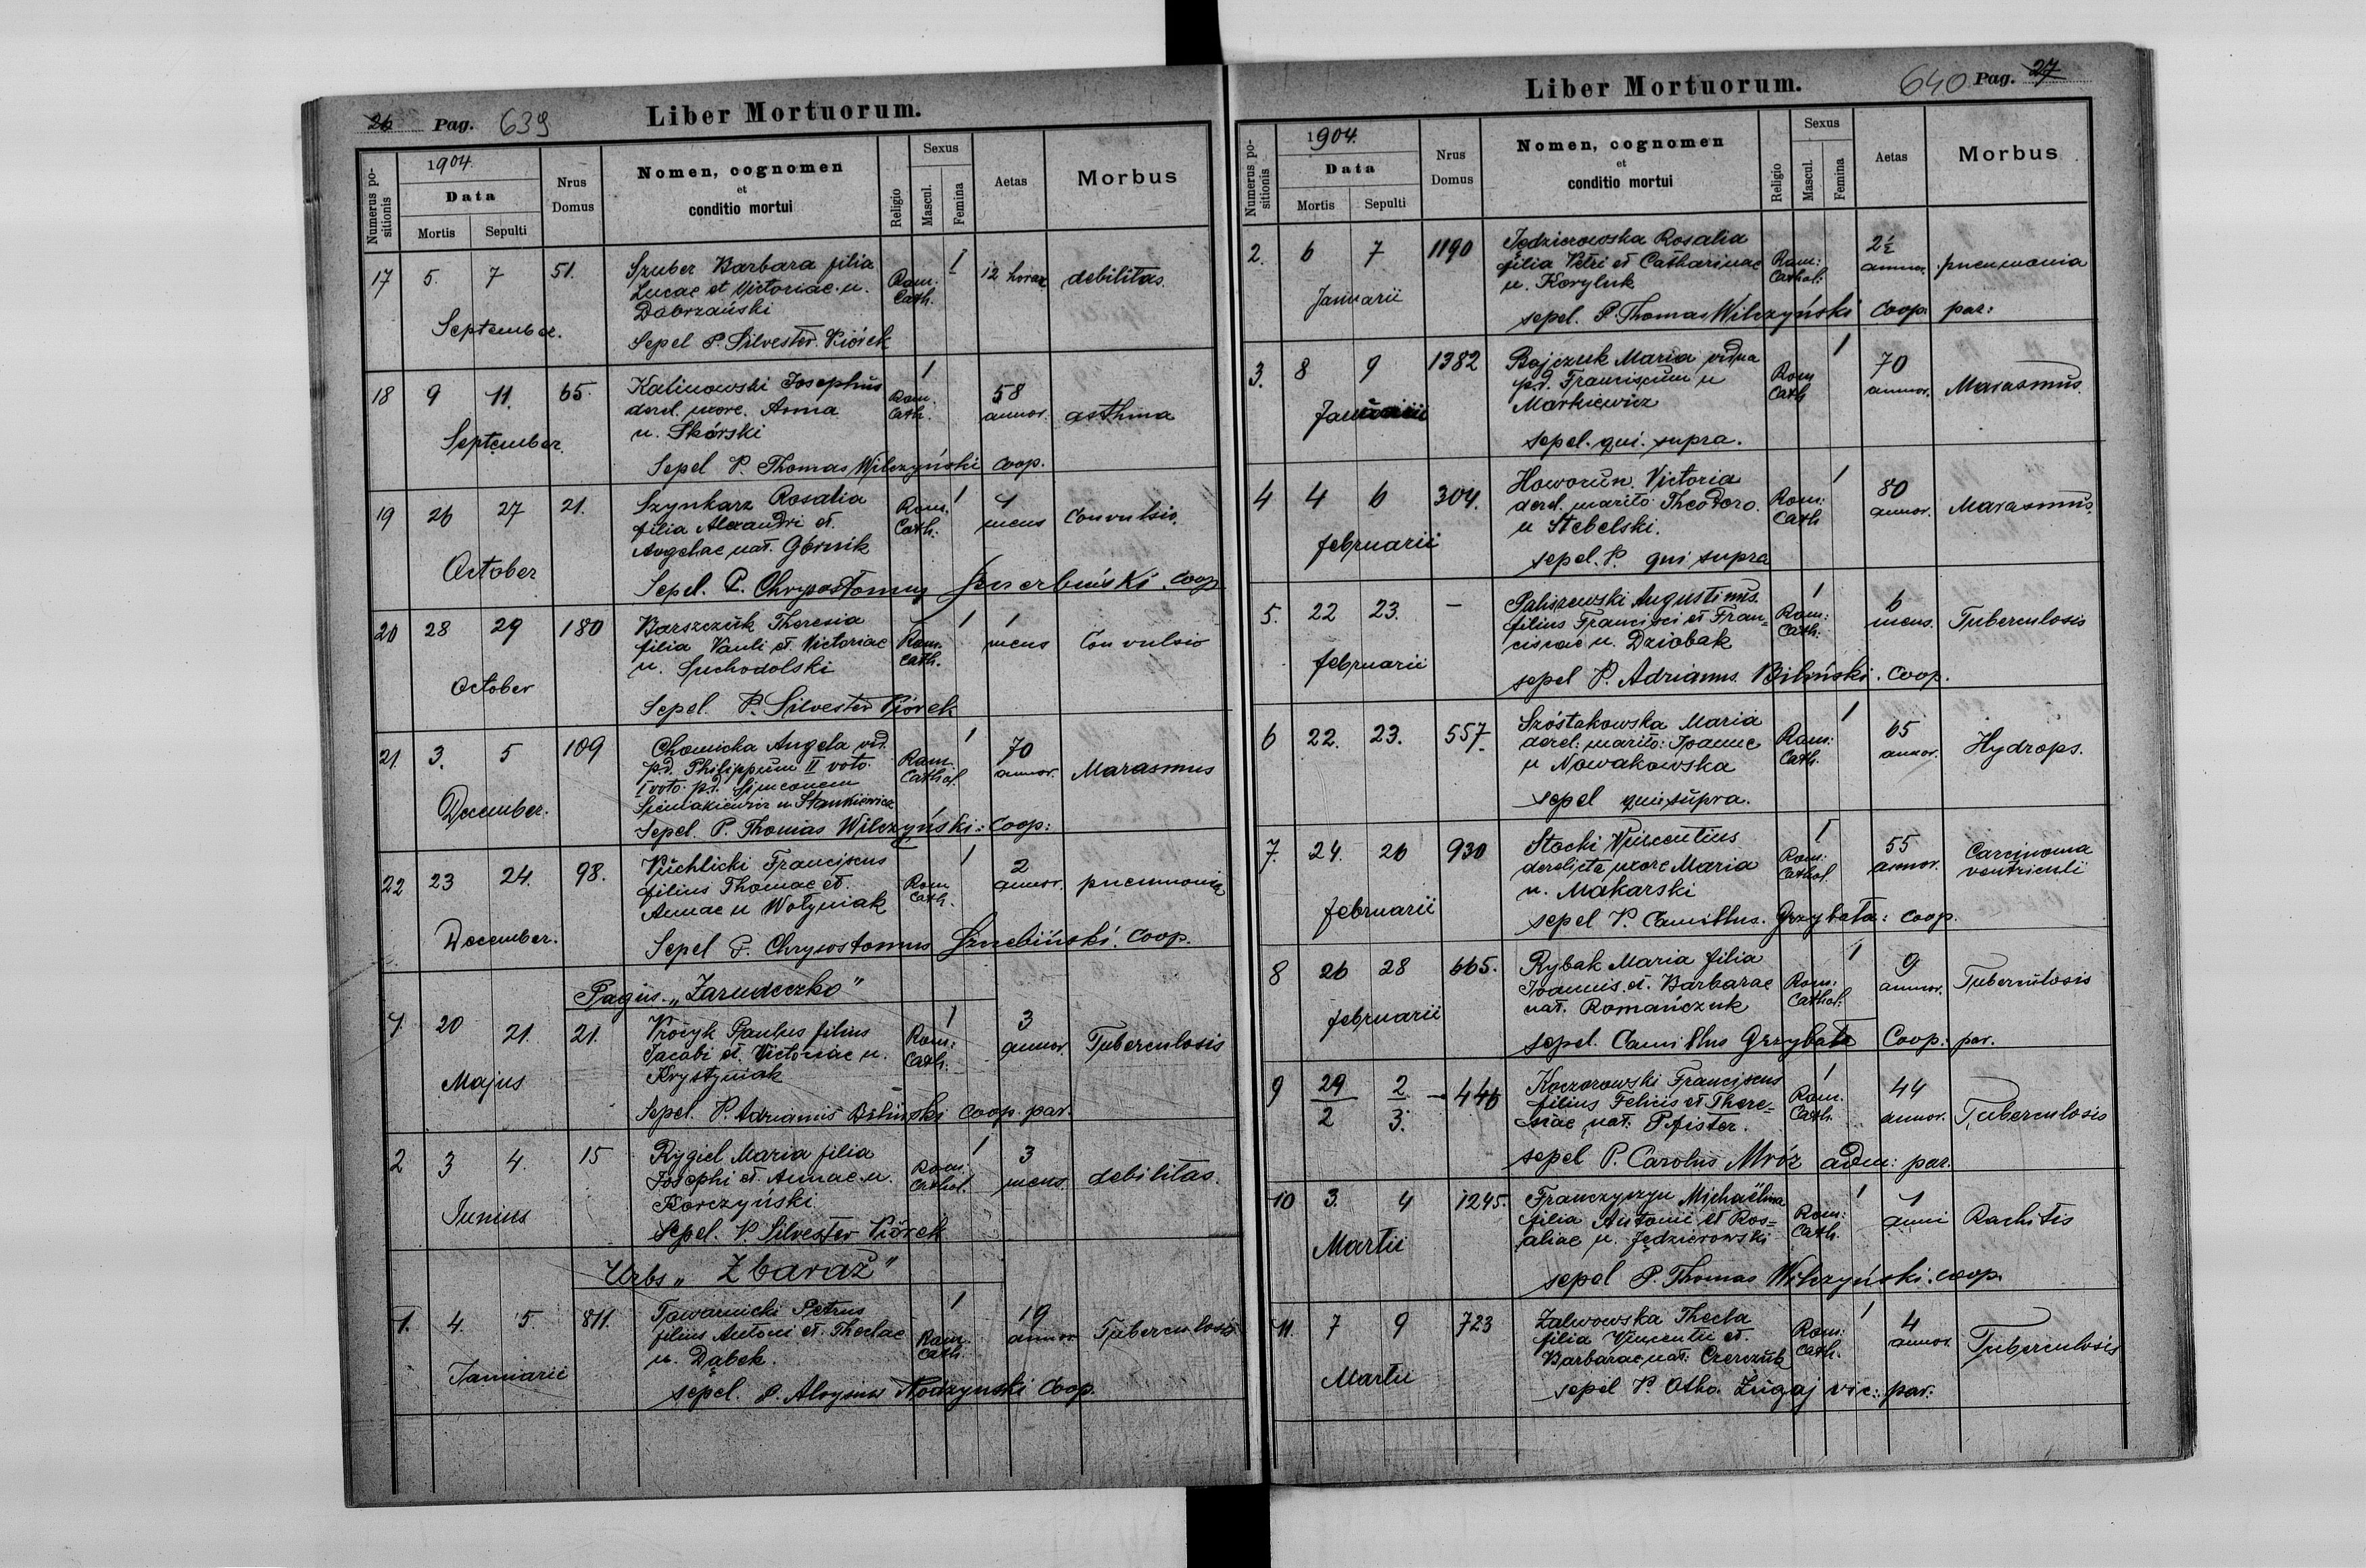 26 Pag. 639 Liber Mortuorum.
Numerus positionis 1904. Data Mortis Sepulti Nrus Domus Nomen, cognomen et conditio mortui Religio Sexus Mascul. Femina Aetas Morbus
17 5. 7 51. Szuber Barbara filia Rom: Cath. 1 12 horar debilitas.
Lucae et Victoriae n.
Dobrzański
September.
Sepel P. Silvester Piórek
18 9 11. 65. Kalinowski Josephus Rom. Cath. 1 58 annor. asthma
derel. uxore Anna
n. Skórski
September.
Sepel P. Thomas Wilczyński coop.
19 26 27 21. Szynkarz Rosalia Rom. Cath: 1 4 mens Convulsio.
filia Alexandri et
Angelae nat. Górnik
October
Sepel. P. Chrysostomus coop
20 28 29 180 Barszczuk Theresia Rom. Cath. 1 1 mens Convulsio
filia Pauli et Victoriae
n. Suchodolski
October
Sepel. P. Silvester Piórek
21. 3. 5 109 Chomicka Angela vid. Rom. Cathol. 1 70 annor. Marasmus
p.d. Philippum II voto
I voto p.d. Simeonem
n Stankiewicz
December.
Sepel. P. Thomas Wilczyński: Coop:
22 23 24. 98. Puchlicki Franciscus Rom Cath. 1 2 annor. pneumonia
filius Thomae et
Annae n Wołyniak
December.
Sepel P. Chrysostomus coop.
Pagus „Zarudeczko"
1. 20 21. 21. Paulus filius Rom: Cath: 1 3 annor. Tuberculosis
Jacobi et Victoriae n.
Krystyniak
Majus
Sepel. P. Adrianus Biliński coop. par.
2 3 4. 15 Rygiel Maria filia Rom. Cathol. 1 3 mens. debilitas.
Josephi et Annae n.
Korczyński
Junius
Sepel. P. Silvester Piórek
Urbs „Zbaraż"
1. 4. 5. 811. Towarnicki Petrus Rom. Cath. 1 19 annor Tuberculosis
filius Antoni et Theclae
n. Dąbek.
Januarii
sepel. P. Aloysius coop.
Liber Mortuorum. 640 Pag. 27
Numerus positionis 1904. Data Mortis Sepulti Nrus Domus Nomen, cognomen et conditio mortui Religio Sexus Mascul. Femina Aetas Morbus
2. 6 7 1190 Jędzierowska Rosalia Rom: Cathol: 2½ annor. pneumonia
filia Petri et Catharinae
n. Koryluk
Januarii
sepel. P. Thomas Wilczyński Coop. par:
3. 8 9 1382 Bajczuk Maria vidua Rom Cath 1 70 annor. Marasmus.
p.d. Franciscum n
Markiewicz
Januarii
sepel. qui supra.
4 4 6 304. Howorun Victoria Rom: Cath 1 80 annor. Marasmus.
derel. marito Theodoro.
n Stebelski.
februarii
sepel. P. qui supra
5. 22 23. — Paliszewski Augustinus Rom: Cath. 1 6 mens. Tuberculosis
filius Francisci et Fran=
ciscae n. Dziobak
februarii
sepel P. Adrianus Biliński. coop.
6 22. 23. 557. Szóstakowska Maria Rom: Cath. 1 65 annor. Hydrops.
derel: marito: Joanne
n Nowakowska
sepel qui supra.
7. 24. 26 930 Stocki Vincentius Rom: Cathol. 1 55 annor. Carcinoma ventriculi
derelicta uxore Maria
n. Makarski
februarii
sepel P. Camillus. Grzybała: coop.
8 26 28 665. Rybak Maria filia Rom: Cathol: 1 9 annor. Tuberculosis
Joannis et Barbarae
nat. Romańczuk
februarii
sepel. Camillus Grzybała Coop: par.
9 29/2 2/3. — 446 Koczorowski Franciscus Rom. Cath. 1 44 annor. Tuberculosis
filius Felicis et There=
siae nat. Pfister.
sepel P. Carolus Mróz adm: par.
10 3. 4 1245. Franczyszyn Michaëlina Rom: Cath. 1 1 anni Rachitis
filia Antonii et Ros=
aliae n. Jędzierowski
Martii
sepel P. Thomas Wilczyński. coop.
11. 7 9 723 Zalwowska Thecla Rom: Cath. 1 4 annor. Tuberculosis
filia Vincentii et
Barbarae nat: Czerczuk
Martii
sepel P. Otho. Zugaj vic: par: